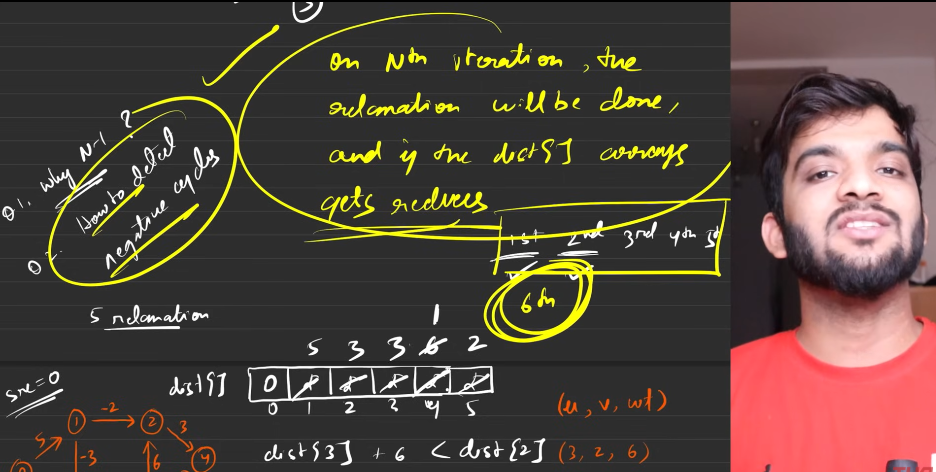 3
on Nth iteration, the
relaxation will be done,
and if the dist[] arrays
gets reduces
Q1. Why N-1 ?
Q- How to detect
negative cycles
1st 2nd 3rd 4th 5t
6th
5 relaxation
1
5 3 3 6 2
src=0
dist[] 0
0 1 2 3 4 5
(u, v, wt)
dist[3] + 6 < dist[2] (3, 2, 6)
5 1 -2 2 3 4
-3 6